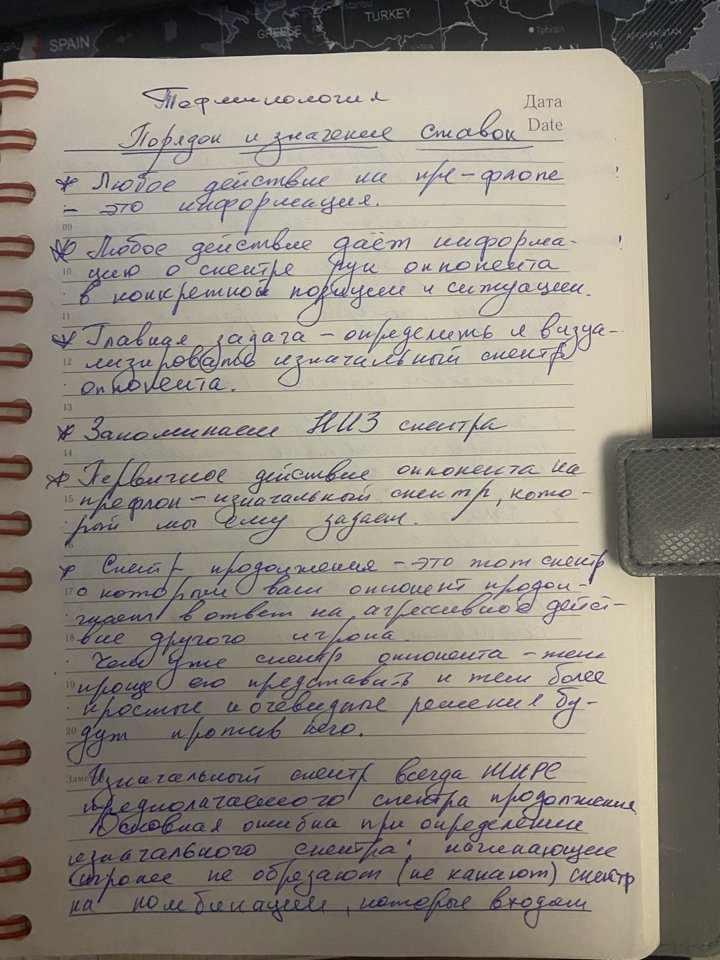 SPAIN
GREECE
Istanbul
TURKEY
SYRIA
Tehran
IRAN
AFGHANISTAN
Терминология
Дата
Date
Порядок и значение ставок
* Любое действие на пре-флопе !
- это информация.
09
* Любое действие даёт информа- !
10 цию о спектре рук оппонента
в конкретной позиции и ситуации.
11
* Главная задача – определить и визуа-
12 лизировать изначальный спектр
оппонента.
13
* Запоминаем НИЗ спектра
14
* Первичное действие оппонента на
15 префлоп – изначальный спектр, кото-
рый мы ему задаем.
16
* Спектр продолжения – это тот спектр
17 с которым ваш оппонент продол-
жает в ответ на агрессивное дейст-
18 вие другого игрока.
Чем уже спектр оппонента – тем
19 проще его представить и тем более
простые и очевидные решения бу-
20 дут против него.
Изначальный спектр всегда ШИРЕ
предполагаемого спектра продолжения
Основная ошибка при определении
изначального спектра: начинающие
игроки не обрезают (не капают) спектр
на комбинации, которые входят